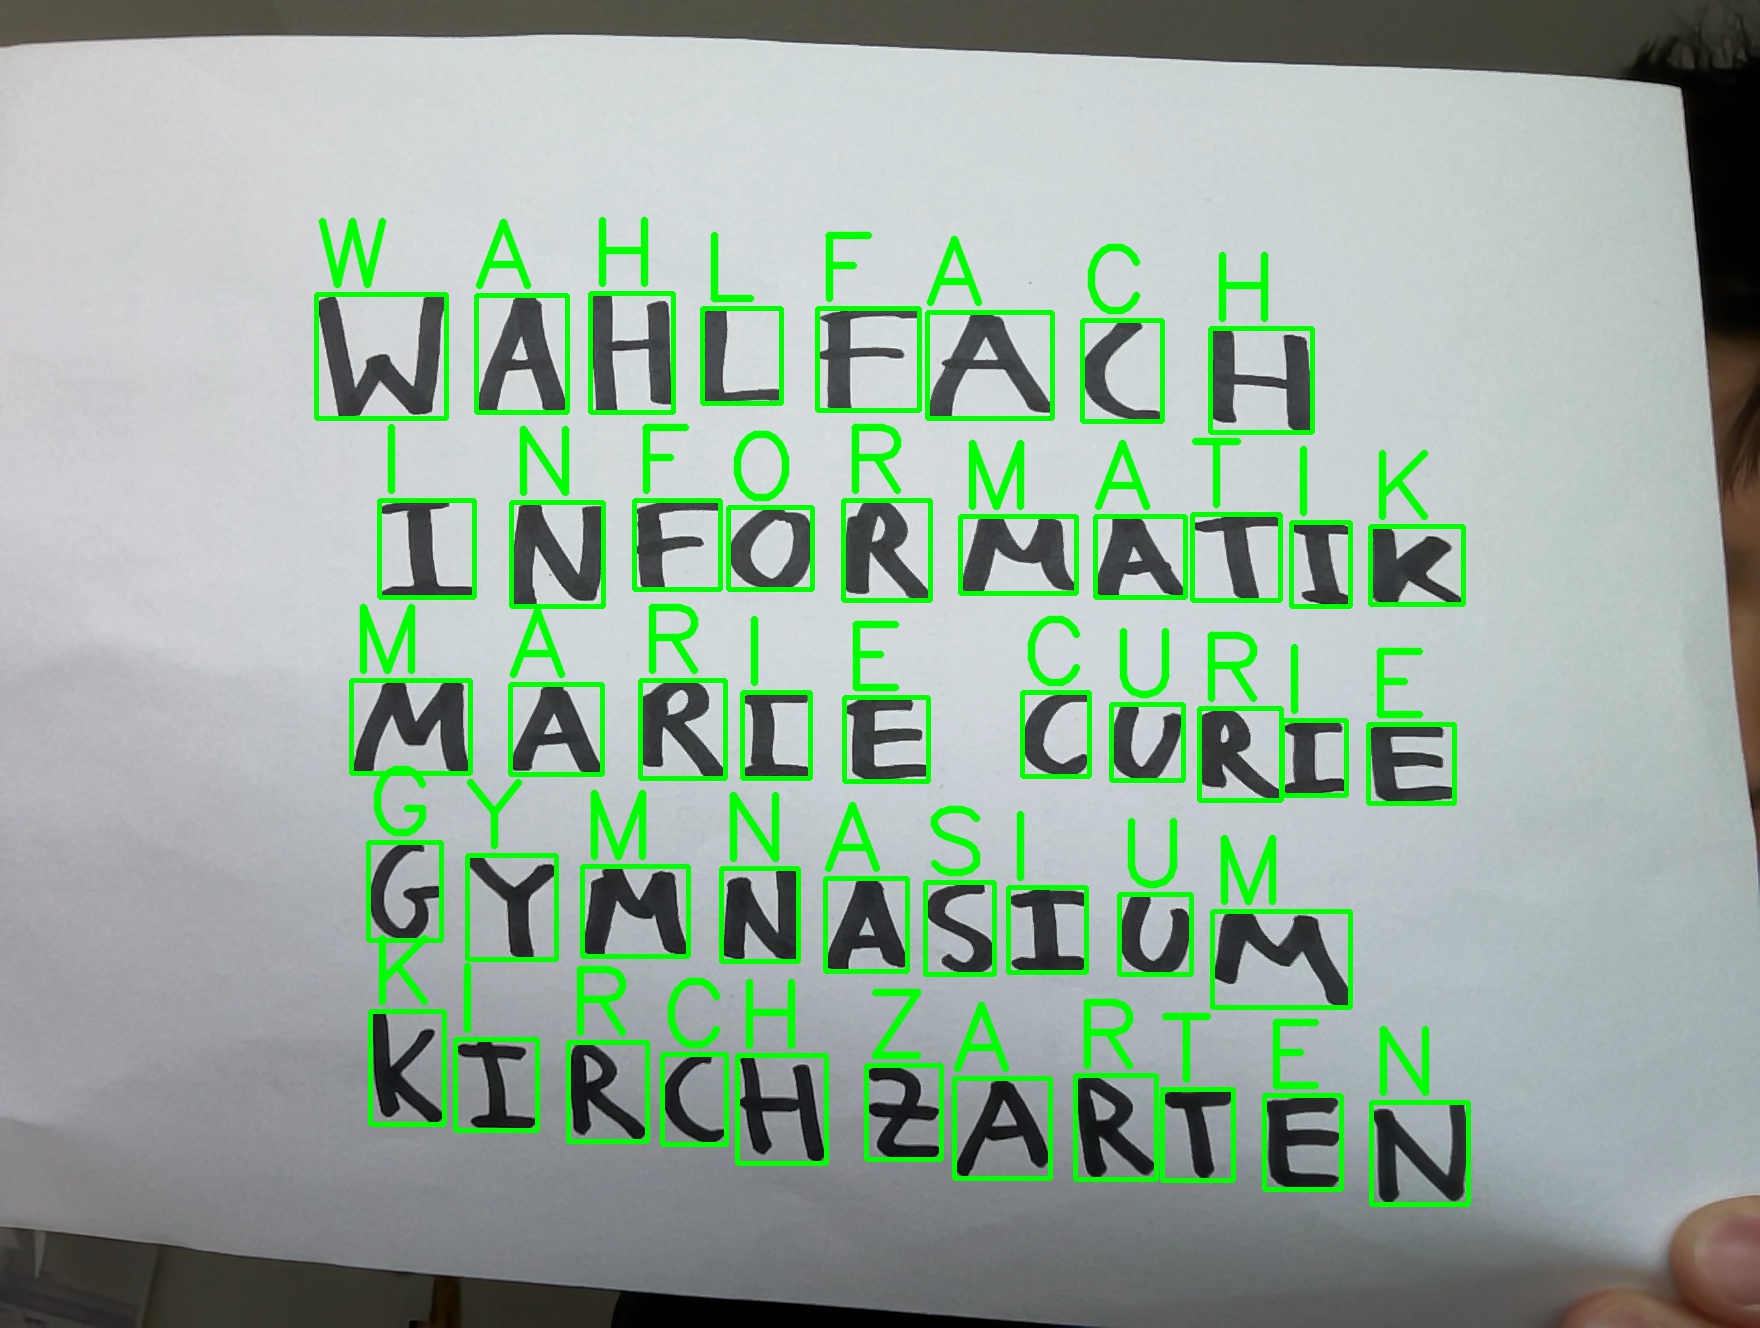 W A H L F A C H
WAHLFACH
I N F O R M A T I K
INFORMATIK
M A R I E C U R I E
MARIE CURIE
G Y M N A S I U M
GYMNASIUM
K I R C H Z A R T E N
KIRCHZARTEN